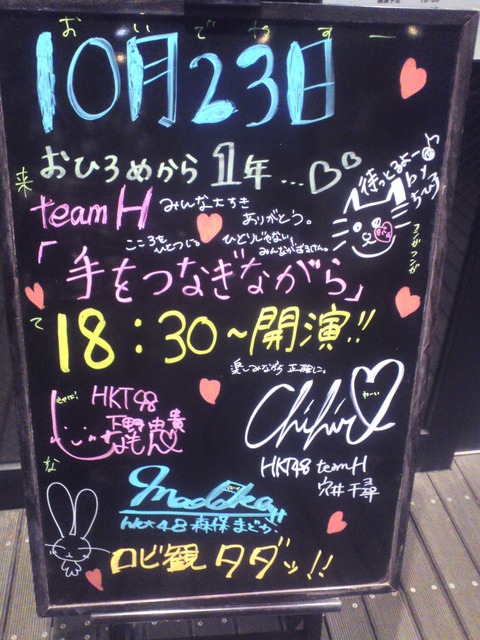 おいでやすー
10月23日
おひろめから1年...
待っとるよー♪
by
ちひろ
team H
みんな大すき
ありがとう。
こころを
ひとつにっ
ひとりじゃない!
「手をつなぎながら」
18:30~開演!!
楽しみながら正確に。
HKT48
下野由貴
Chihiro
HKT48 teamH
穴井千尋
Madoka
HKT48 森保まどか
ロビ観 タダッ!!
来
て
な